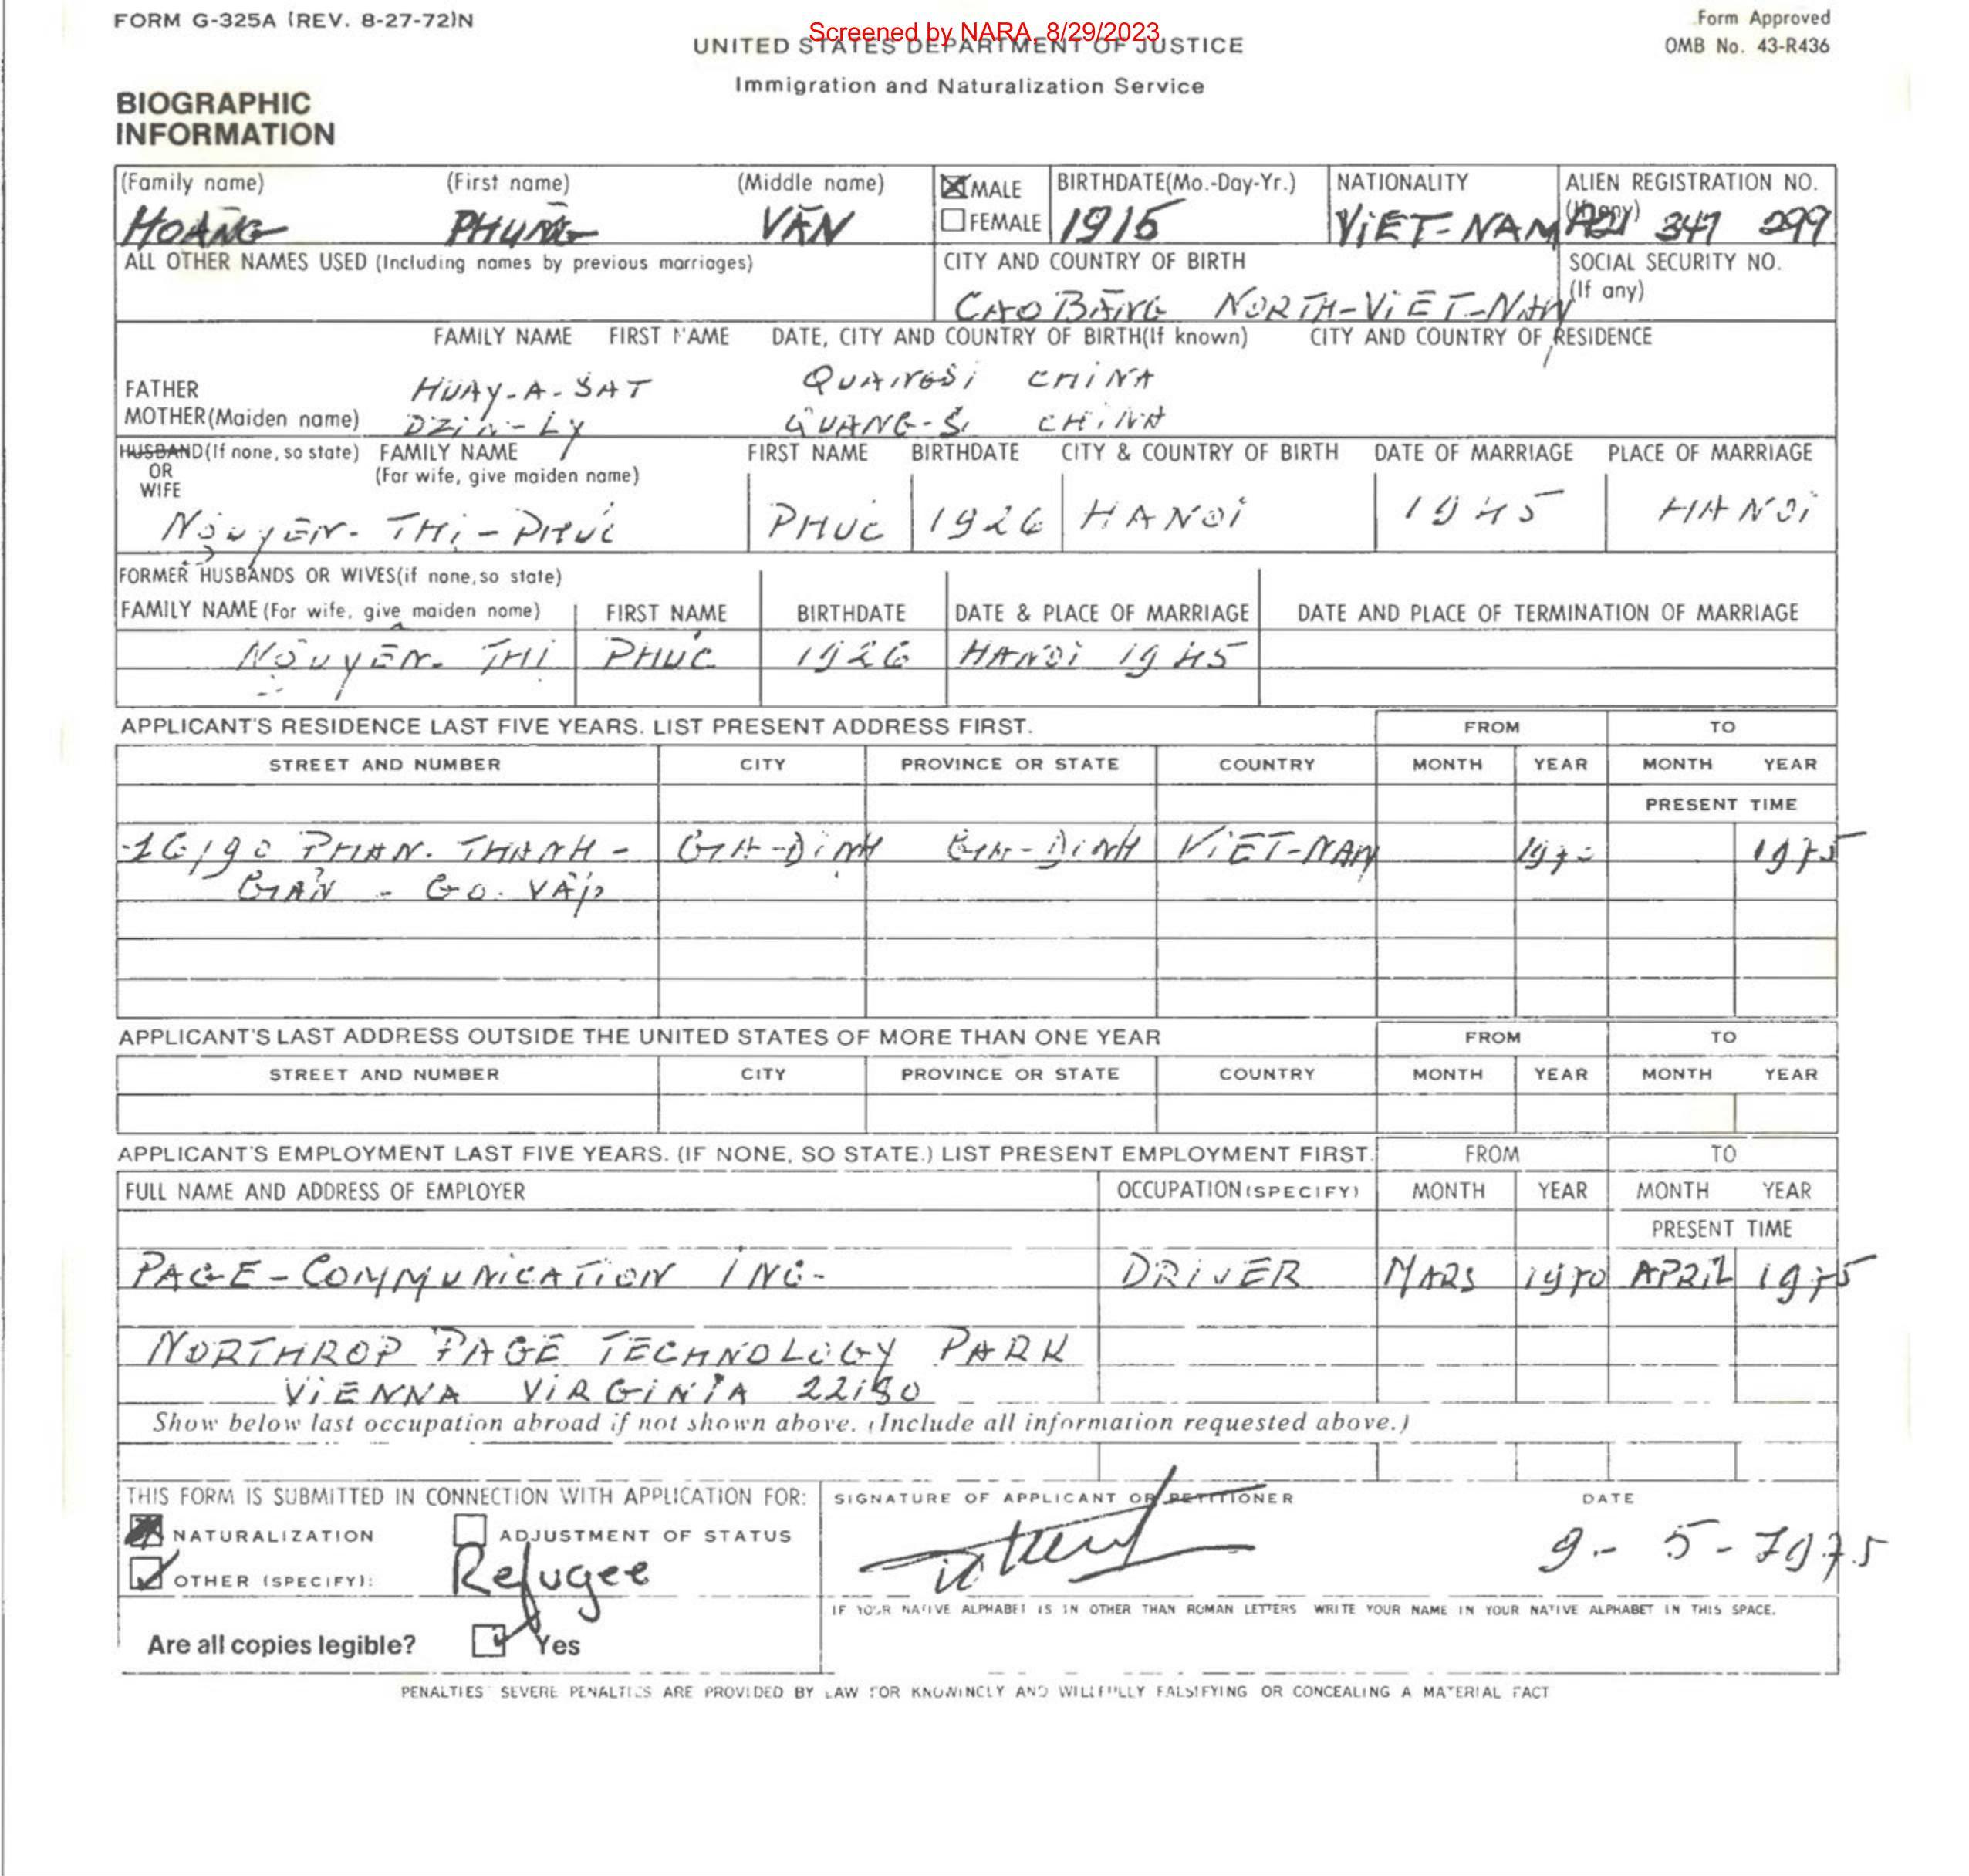 FORM G-325A (REV. 8-27-72)N
Screened by NARA, 8/29/2023
Form Approved
OMB No. 43-R436
UNITED STATES DEPARTMENT OF JUSTICE
Immigration and Naturalization Service
BIOGRAPHIC
INFORMATION
(Family name) (First name) (Middle name) MALE BIRTHDATE(Mo.-Day-Yr.) NATIONALITY ALIEN REGISTRATION NO.
(If any)
HOANG PHUNG VĂN FEMALE 1915 VIET-NAM A21 347 299
ALL OTHER NAMES USED (Including names by previous marriages) CITY AND COUNTRY OF BIRTH SOCIAL SECURITY NO.
(If any)
CAO BĂNG NORTH-VIET-NAM
FAMILY NAME FIRST NAME DATE, CITY AND COUNTRY OF BIRTH(If known) CITY AND COUNTRY OF RESIDENCE
FATHER HUAY-A-SAT QUANGSI CHINA
MOTHER(Maiden name) DZIN-LY QUANG-SI CHINA
HUSBAND(If none, so state) FAMILY NAME FIRST NAME BIRTHDATE CITY & COUNTRY OF BIRTH DATE OF MARRIAGE PLACE OF MARRIAGE
OR (For wife, give maiden name)
WIFE
NGUYEN-THI-PHÚC PHUC 1926 HANOI 1945 HANOI
FORMER HUSBANDS OR WIVES(if none, so state)
FAMILY NAME (For wife, give maiden name) FIRST NAME BIRTHDATE DATE & PLACE OF MARRIAGE DATE AND PLACE OF TERMINATION OF MARRIAGE
NGUYÊN. THI PHÚC 1926 HANOI 1945
APPLICANT'S RESIDENCE LAST FIVE YEARS. LIST PRESENT ADDRESS FIRST. FROM TO
STREET AND NUMBER CITY PROVINCE OR STATE COUNTRY MONTH YEAR MONTH YEAR
PRESENT TIME
16/90 PHAN. THANH- GIA-DINH GIA-DINH VIET-NAM 1975
GIẢN - GO. VẤP
APPLICANT'S LAST ADDRESS OUTSIDE THE UNITED STATES OF MORE THAN ONE YEAR FROM TO
STREET AND NUMBER CITY PROVINCE OR STATE COUNTRY MONTH YEAR MONTH YEAR
APPLICANT'S EMPLOYMENT LAST FIVE YEARS. (IF NONE, SO STATE.) LIST PRESENT EMPLOYMENT FIRST. FROM TO
FULL NAME AND ADDRESS OF EMPLOYER OCCUPATION (SPECIFY) MONTH YEAR MONTH YEAR
PRESENT TIME
PAGE-COMMUNICATION INC- DRIVER MARS 1970 APRIL 1975
NORTHROP PAGE TECHNOLOGY PARK
VIENNA VIRGINIA 22180
Show below last occupation abroad if not shown above. (Include all information requested above.)
THIS FORM IS SUBMITTED IN CONNECTION WITH APPLICATION FOR: SIGNATURE OF APPLICANT OR PETITIONER DATE
NATURALIZATION ADJUSTMENT OF STATUS
9-5-1975
OTHER (SPECIFY): Refugee
IF YOUR NATIVE ALPHABET IS IN OTHER THAN ROMAN LETTERS WRITE YOUR NAME IN YOUR NATIVE ALPHABET IN THIS SPACE.
Are all copies legible? Yes
PENALTIES SEVERE PENALTIES ARE PROVIDED BY LAW FOR KNOWINGLY AND WILLFULLY FALSIFYING OR CONCEALING A MATERIAL FACT